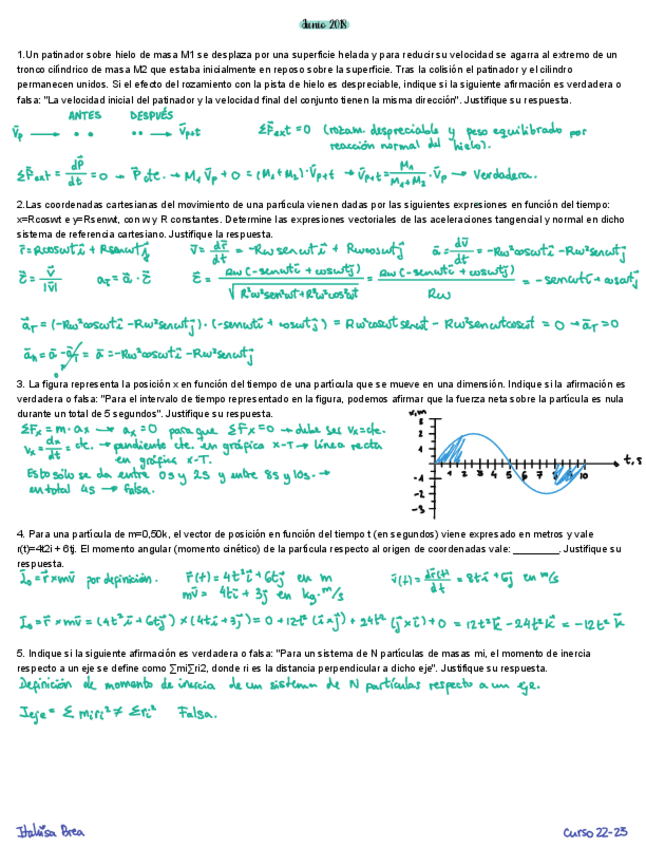 Junio 2018
1.Un patinador sobre hielo de masa M1 se desplaza por una superficie helada y para reducir su velocidad se agarra al extremo de un
tronco cilíndrico de masa M2 que estaba inicialmente en reposo sobre la superficie. Tras la colisión el patinador y el cilindro
permanecen unidos. Si el efecto del rozamiento con la pista de hielo es despreciable, indique si la siguiente afirmación es verdadera o
falsa: "La velocidad inicial del patinador y la velocidad final del conjunto tienen la misma dirección". Justifique su respuesta.
ANTES DESPUÉS
V̄p → • • •• → V̄p+t ΣF̄ext = 0 (rozam. despreciable y peso equilibrado por
reacción normal del hielo).
ΣF̄ext = dp̄/dt = 0 → P̄ cte. → M₁V̄p + 0 = (M₁+M₂)·V̄p+t → V̄p+t = M₁/(M₁+M₂)·V̄p → Verdadera.
2.Las coordenadas cartesianas del movimiento de una partícula vienen dadas por las siguientes expresiones en función del tiempo:
x=Rcoswt e y=Rsenwt, con w y R constantes. Determine las expresiones vectoriales de las aceleraciones tangencial y normal en dicho
sistema de referencia cartesiano. Justifique la respuesta.
r̄ = Rcoswt ī + Rsenwt j̄ v̄ = dr̄/dt = -Rw senwt ī + Rw coswt j̄ ā = dv̄/dt = -Rw²coswt ī - Rw²senwt j̄
τ̄ = v̄/|v̄| aT = ā · τ̄ τ̄ = Rw(-senwt ī + coswt j̄)/√(R²w²sen²wt + R²w²cos²wt) = Rw(-senwt ī + coswt j̄)/Rw = -senwt ī + coswt j̄
āT = (-Rw²coswt ī - Rw²senwt j̄) · (-senwt ī + coswt j̄) = Rw²coswt senwt - Rw²senwt coswt = 0 → āT = 0
ān = ā - āT = ā = -Rw²coswt ī - Rw²senwt j̄
0
3. La figura representa la posición x en función del tiempo de una partícula que se mueve en una dimensión. Indique si la afirmación es
verdadera o falsa: "Para el intervalo de tiempo representado en la figura, podemos afirmar que la fuerza neta sobre la partícula es nula
durante un total de 5 segundos". Justifique su respuesta.
ΣFx = m·ax → ax = 0 para que ΣFx = 0 → debe ser vx = cte.
vx = dx/dt = cte. → pendiente cte. en gráfica x-T → línea recta
en gráfica x-T.
Esto sólo se da entre 0s y 2s y entre 8s y 10s. →
en total 4s → Falsa.
x,m
3
2
1
1 2 3 4 5 6 7 8 9 10 t,s
-1
-2
-3
4. Para una partícula de m=0,50k, el vector de posición en función del tiempo t (en segundos) viene expresado en metros y vale
r(t)=4t2i + 6tj. El momento angular (momento cinético) de la partícula respecto al origen de coordenadas vale: ________. Justifique su
respuesta.
L̄o = r̄ × mv̄ por definición. r̄(t) = 4t² ī + 6t j̄ en m v̄(t) = dr̄(t)/dt = 8t ī + 6 j̄ en m/s
mv̄ = 4t ī + 3 j̄ en kg·m/s
L̄o = r̄ × mv̄ = (4t² ī + 6t j̄) × (4t ī + 3 j̄) = 0 + 12t² (ī × j̄) + 24t² (j̄ × ī) + 0 = 12t² k̄ - 24t² k̄ = -12t² k̄
5. Indique si la siguiente afirmación es verdadera o falsa: "Para un sistema de N partículas de masas mi, el momento de inercia
respecto a un eje se define como ∑mi∑ri2, donde ri es la distancia perpendicular a dicho eje". Justifique su respuesta.
Definición de momento de inercia de un sistema de N partículas respecto a un eje.
Ieje = Σ miri² ≠ Σri² Falsa.
Brea
Curso 22-23